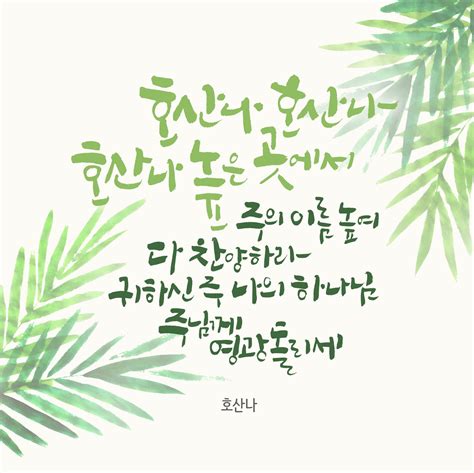 호산나 호산나
호산나 높은 곳에서
주의 이름 높여
다 찬양하라
귀하신 주 나의 하나님
주님께
영광 돌리세
호산나